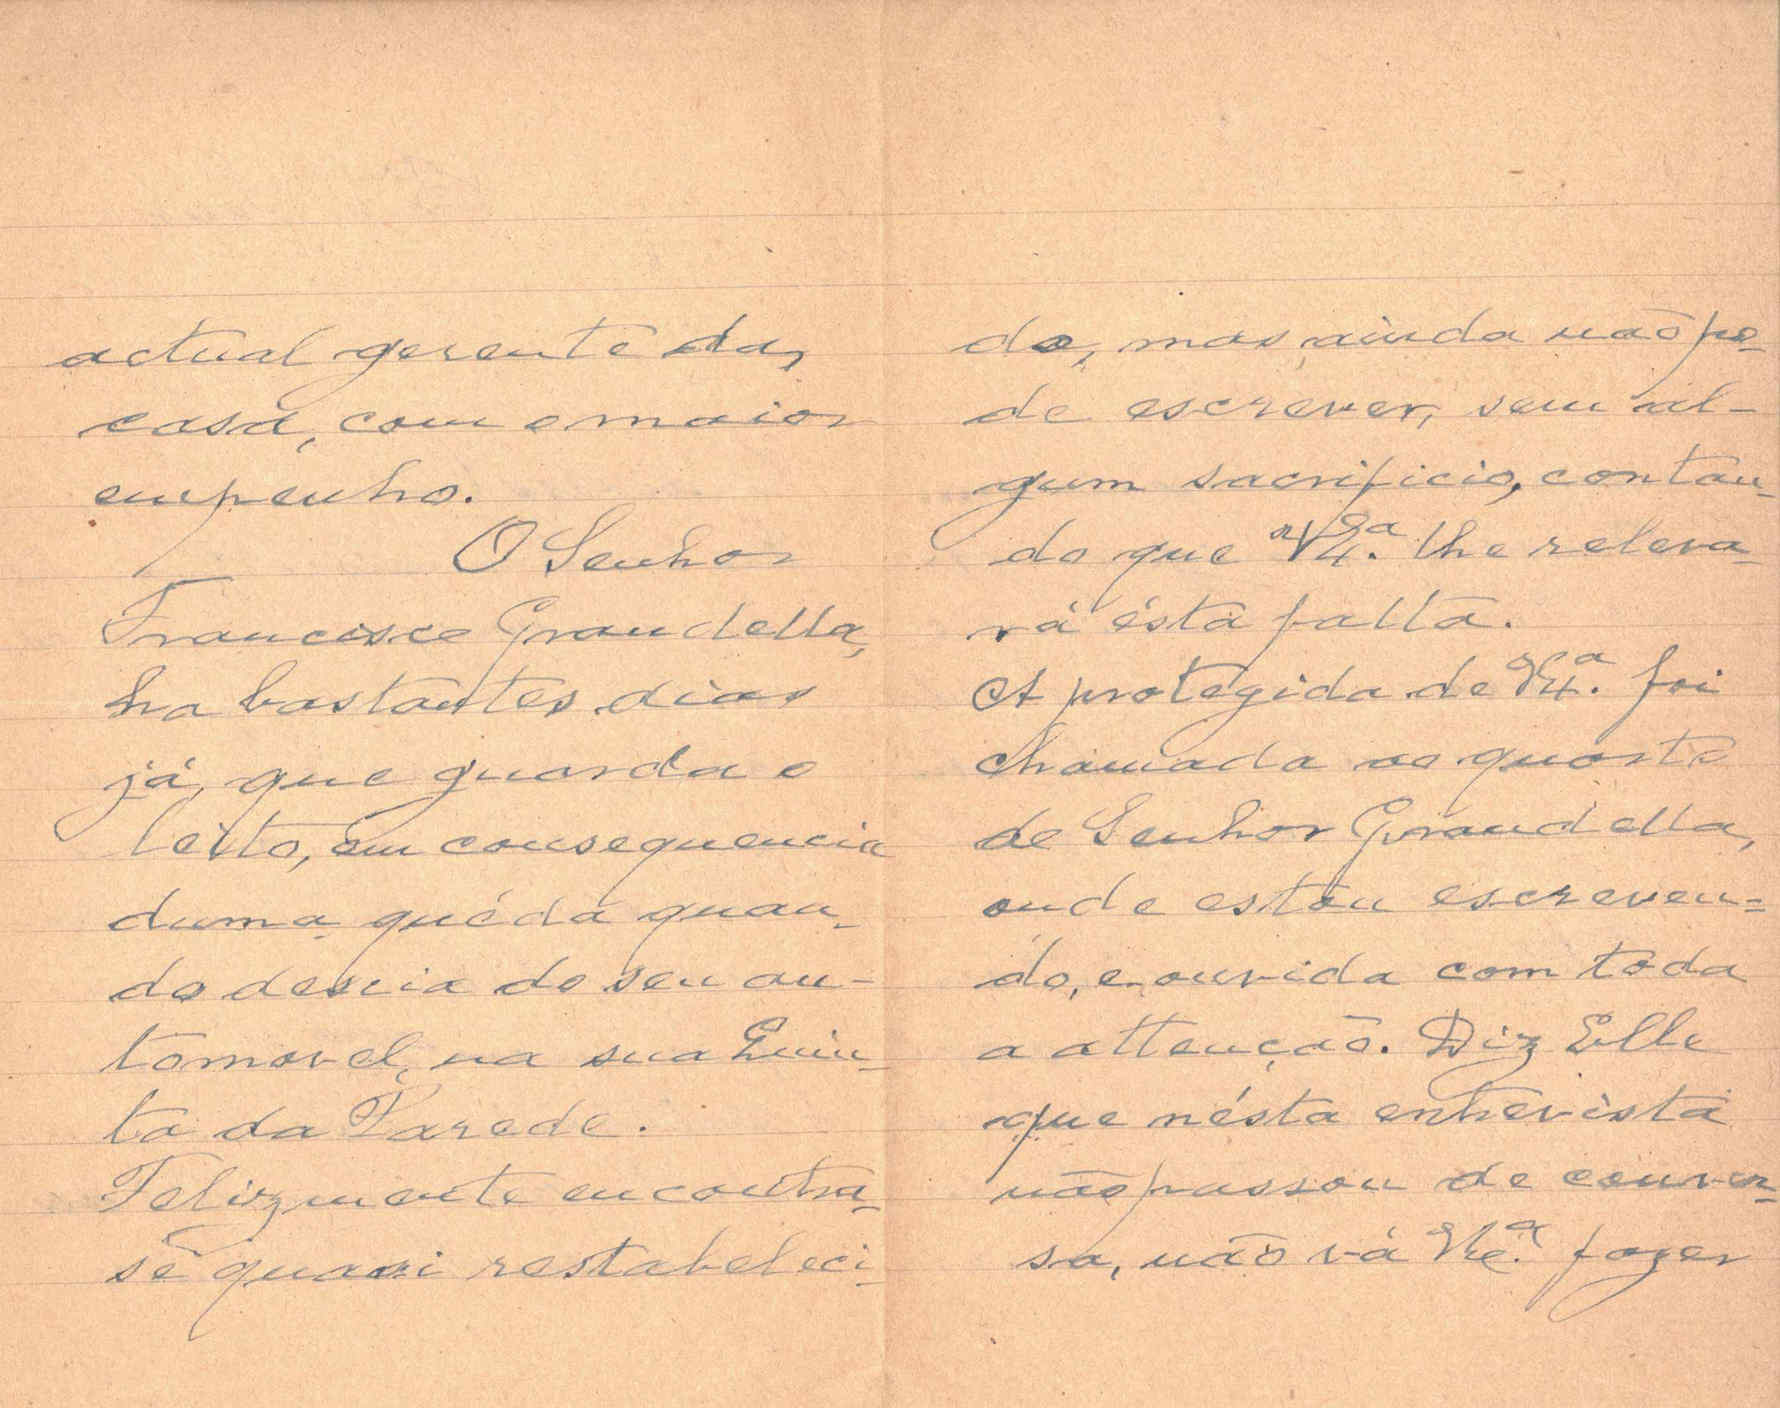 actual gerente da,
casa, com o maior
empenho.
O Senhor
Francisco Grandella,
ha bastantes dias
já, que guarda o
leito, em consequencia
duma quéda quan-
do descia do seu au-
tomovel, na sua Quin-
ta da Parede.
Felizmente encontra-
se quasi restabeleci-
do, mas ainda não po-
de escrever, sem al-
gum sacrificio, contan-
do que V. Eª. lhe releva-
rá ésta falta.
A protegida de V. Eª. foi
chamada ao quarto
do Senhor Grandella,
onde estou escreven=
do, e ouvida com toda
a attenção. Diz Elle
que nésta entrevista
não passou de conver-
sa, não vá V. Eª. fazer